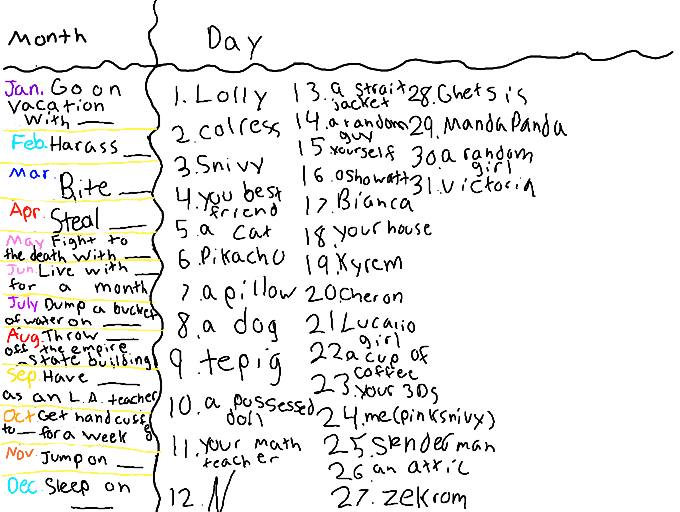 Month
Jan. Go on
vacation
with __
Feb. Harass __
Mar. Bite __
Apr. Steal __
May Fight to
the death with __
Jun. Live with __
for a month
July Dump a bucket
of water on __
Aug. Throw __
off the empire
state building
Sep. Have __
as an L.A. teacher
Oct Get handcuffed
to __ for a week
Nov. Jump on __
Dec. Sleep on
__
Day
1. Lolly
2. colress
3. Snivy
4. you best
friend
5. a cat
6. Pikachu
7. a pillow
8. a dog
9. tepig
10. a possessed
doll
11. your math
teacher
12. N
13. a strait
jacket
14. a random
guy
15. yourself
16. oshowatt
17. Bianca
18. your house
19. Kyrem
20 Cheron
21 Lucario
girl
22 a cup of
coffee
23. your 3Ds
24. me (pinksnivx)
25. Slenderman
26. an attic
27. zekrom
28. Ghetsis
29. MandaPanda
30. a random
girl
31. Victoria